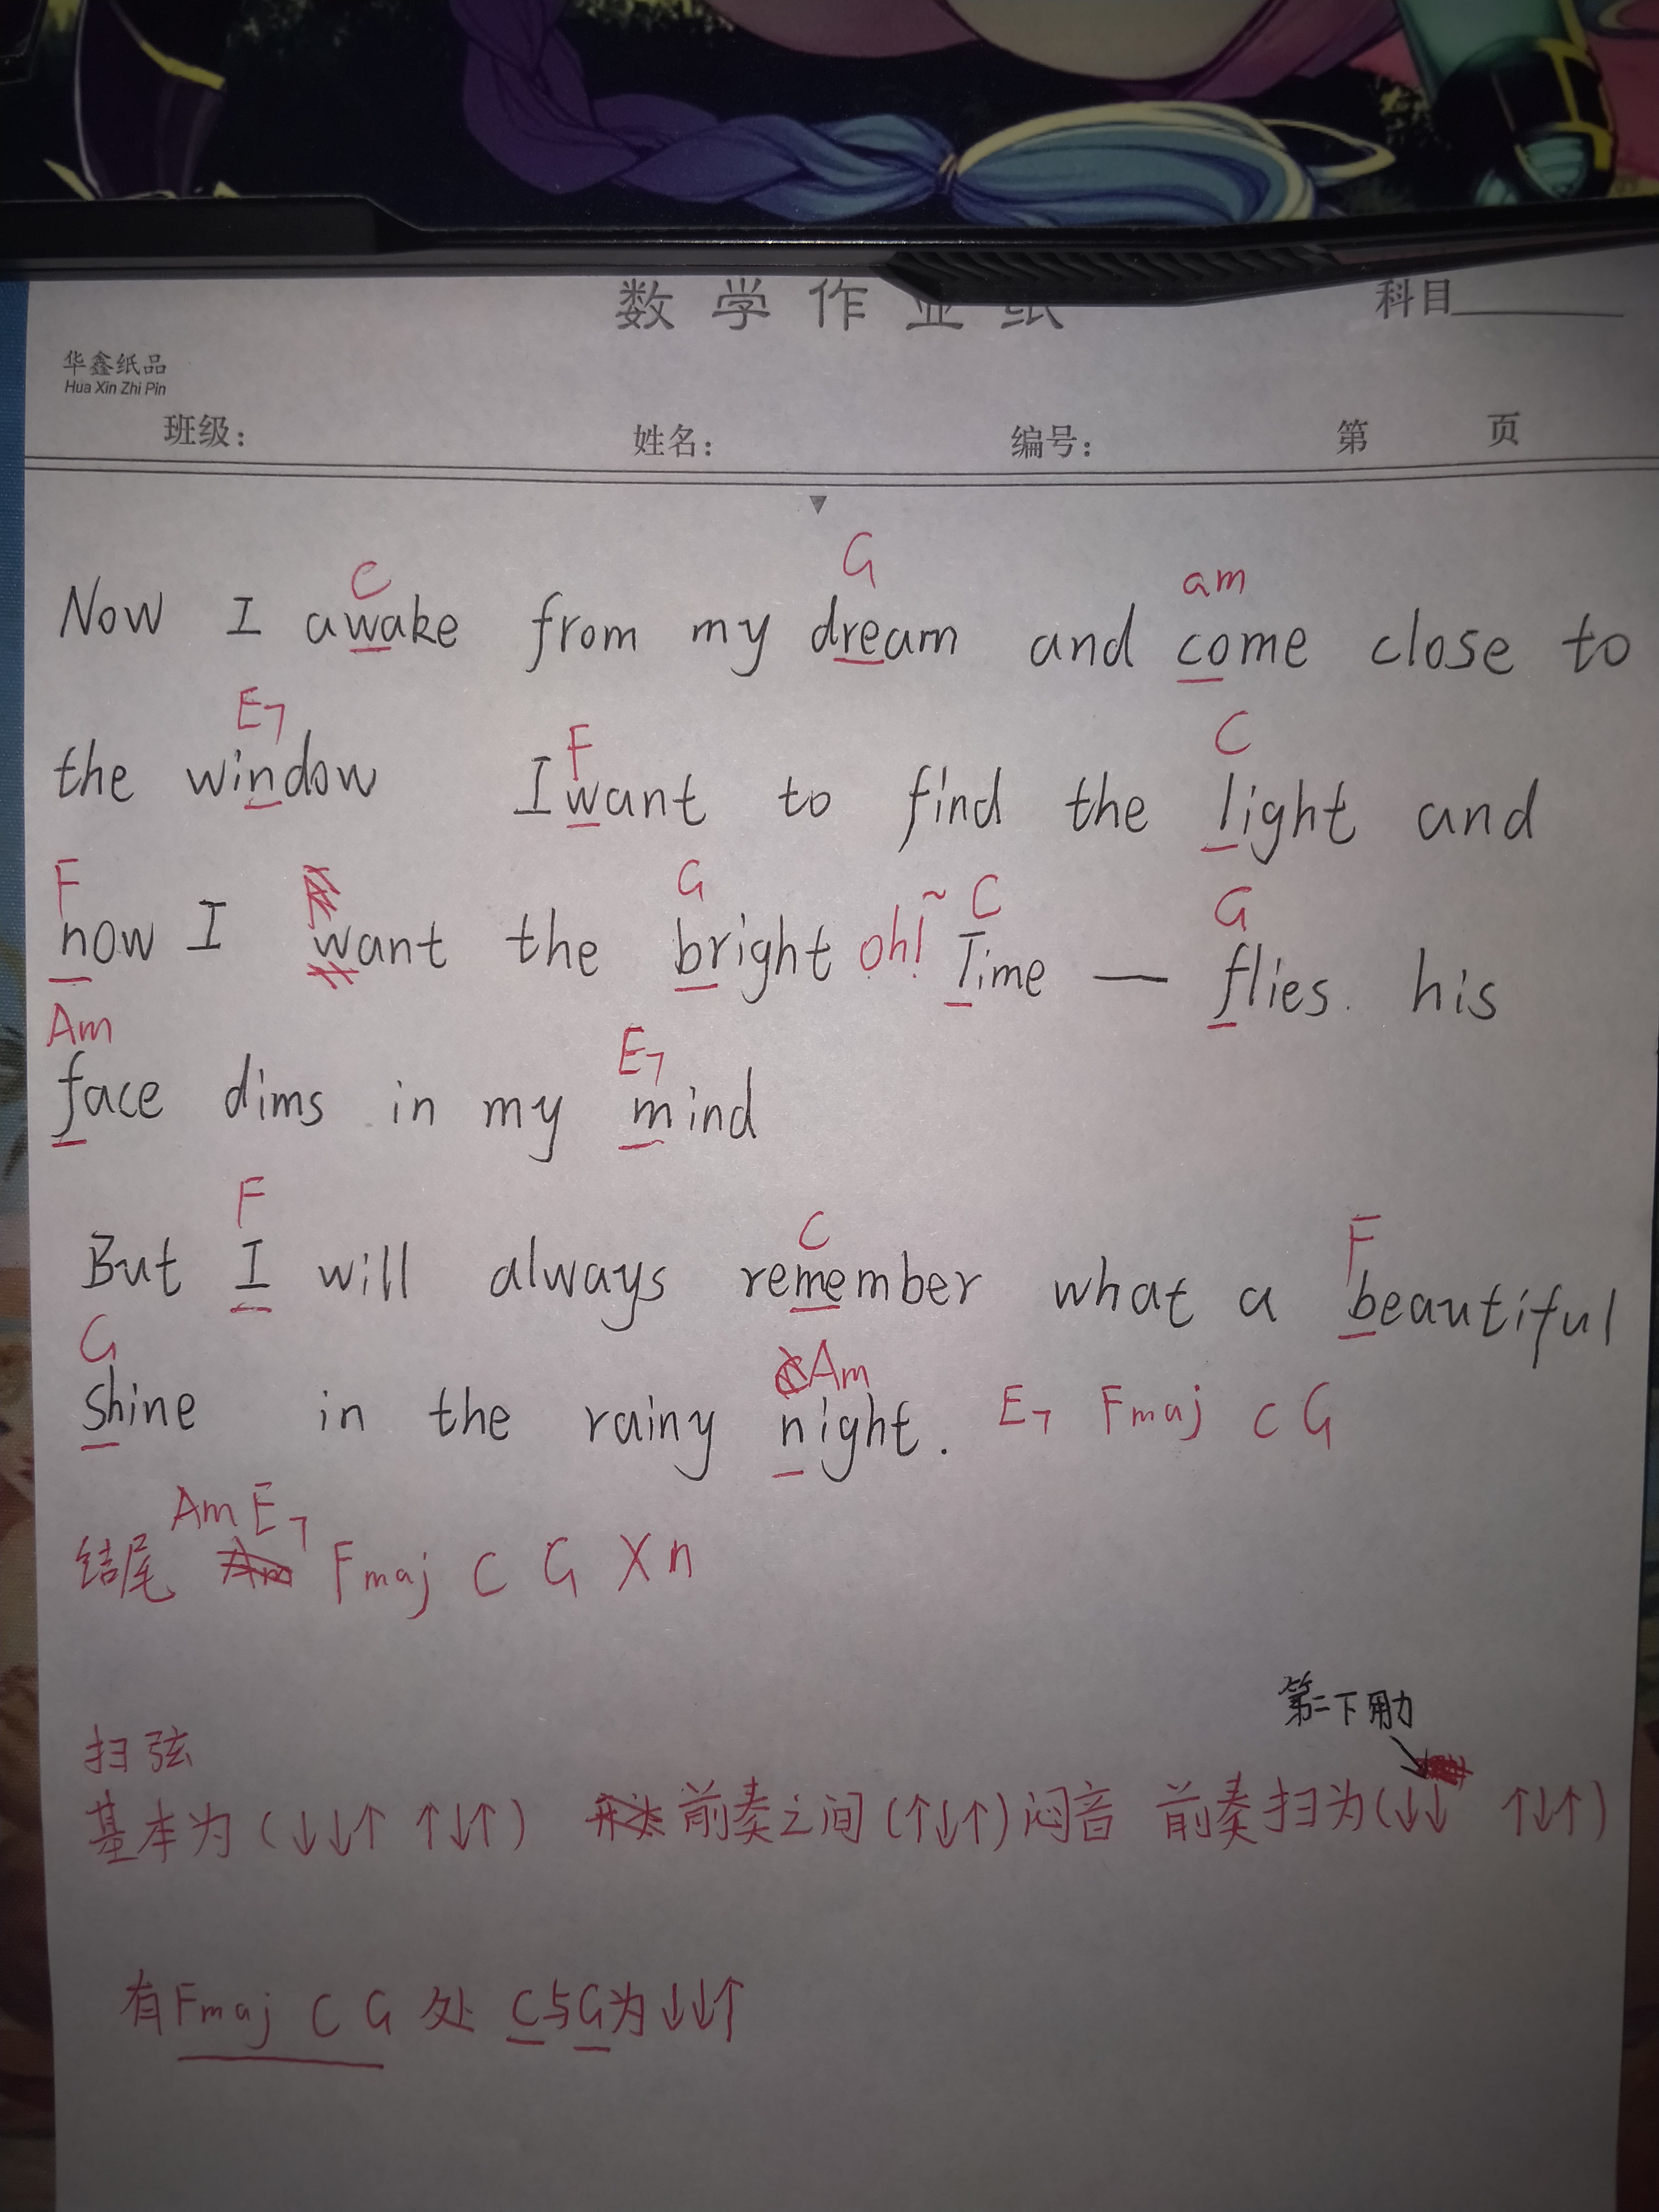 数学作业纸
科目
华鑫纸品
Hua Xin Zhi Pin
班级: 姓名: 编号: 第 页
C G am
Now I awake from my dream and come close to
E7 F C
the window I want to find the light and
F G ~ C G
now I want the bright oh! Time — flies. his
Am E7
face dims in my mind
F C F
But I will always remember what a beautiful
G Am
shine in the rainy night. E7 Fmaj C G
Am E7
结尾 Fmaj C G Xn
第二下用力
扫弦
基本为(↓↓↑ ↑↓↑) 前奏之间(↑↓↑)闷音 前奏扫为(↓↓ ↑↓↑)
有Fmaj C G 处 C与G为↓↓↑